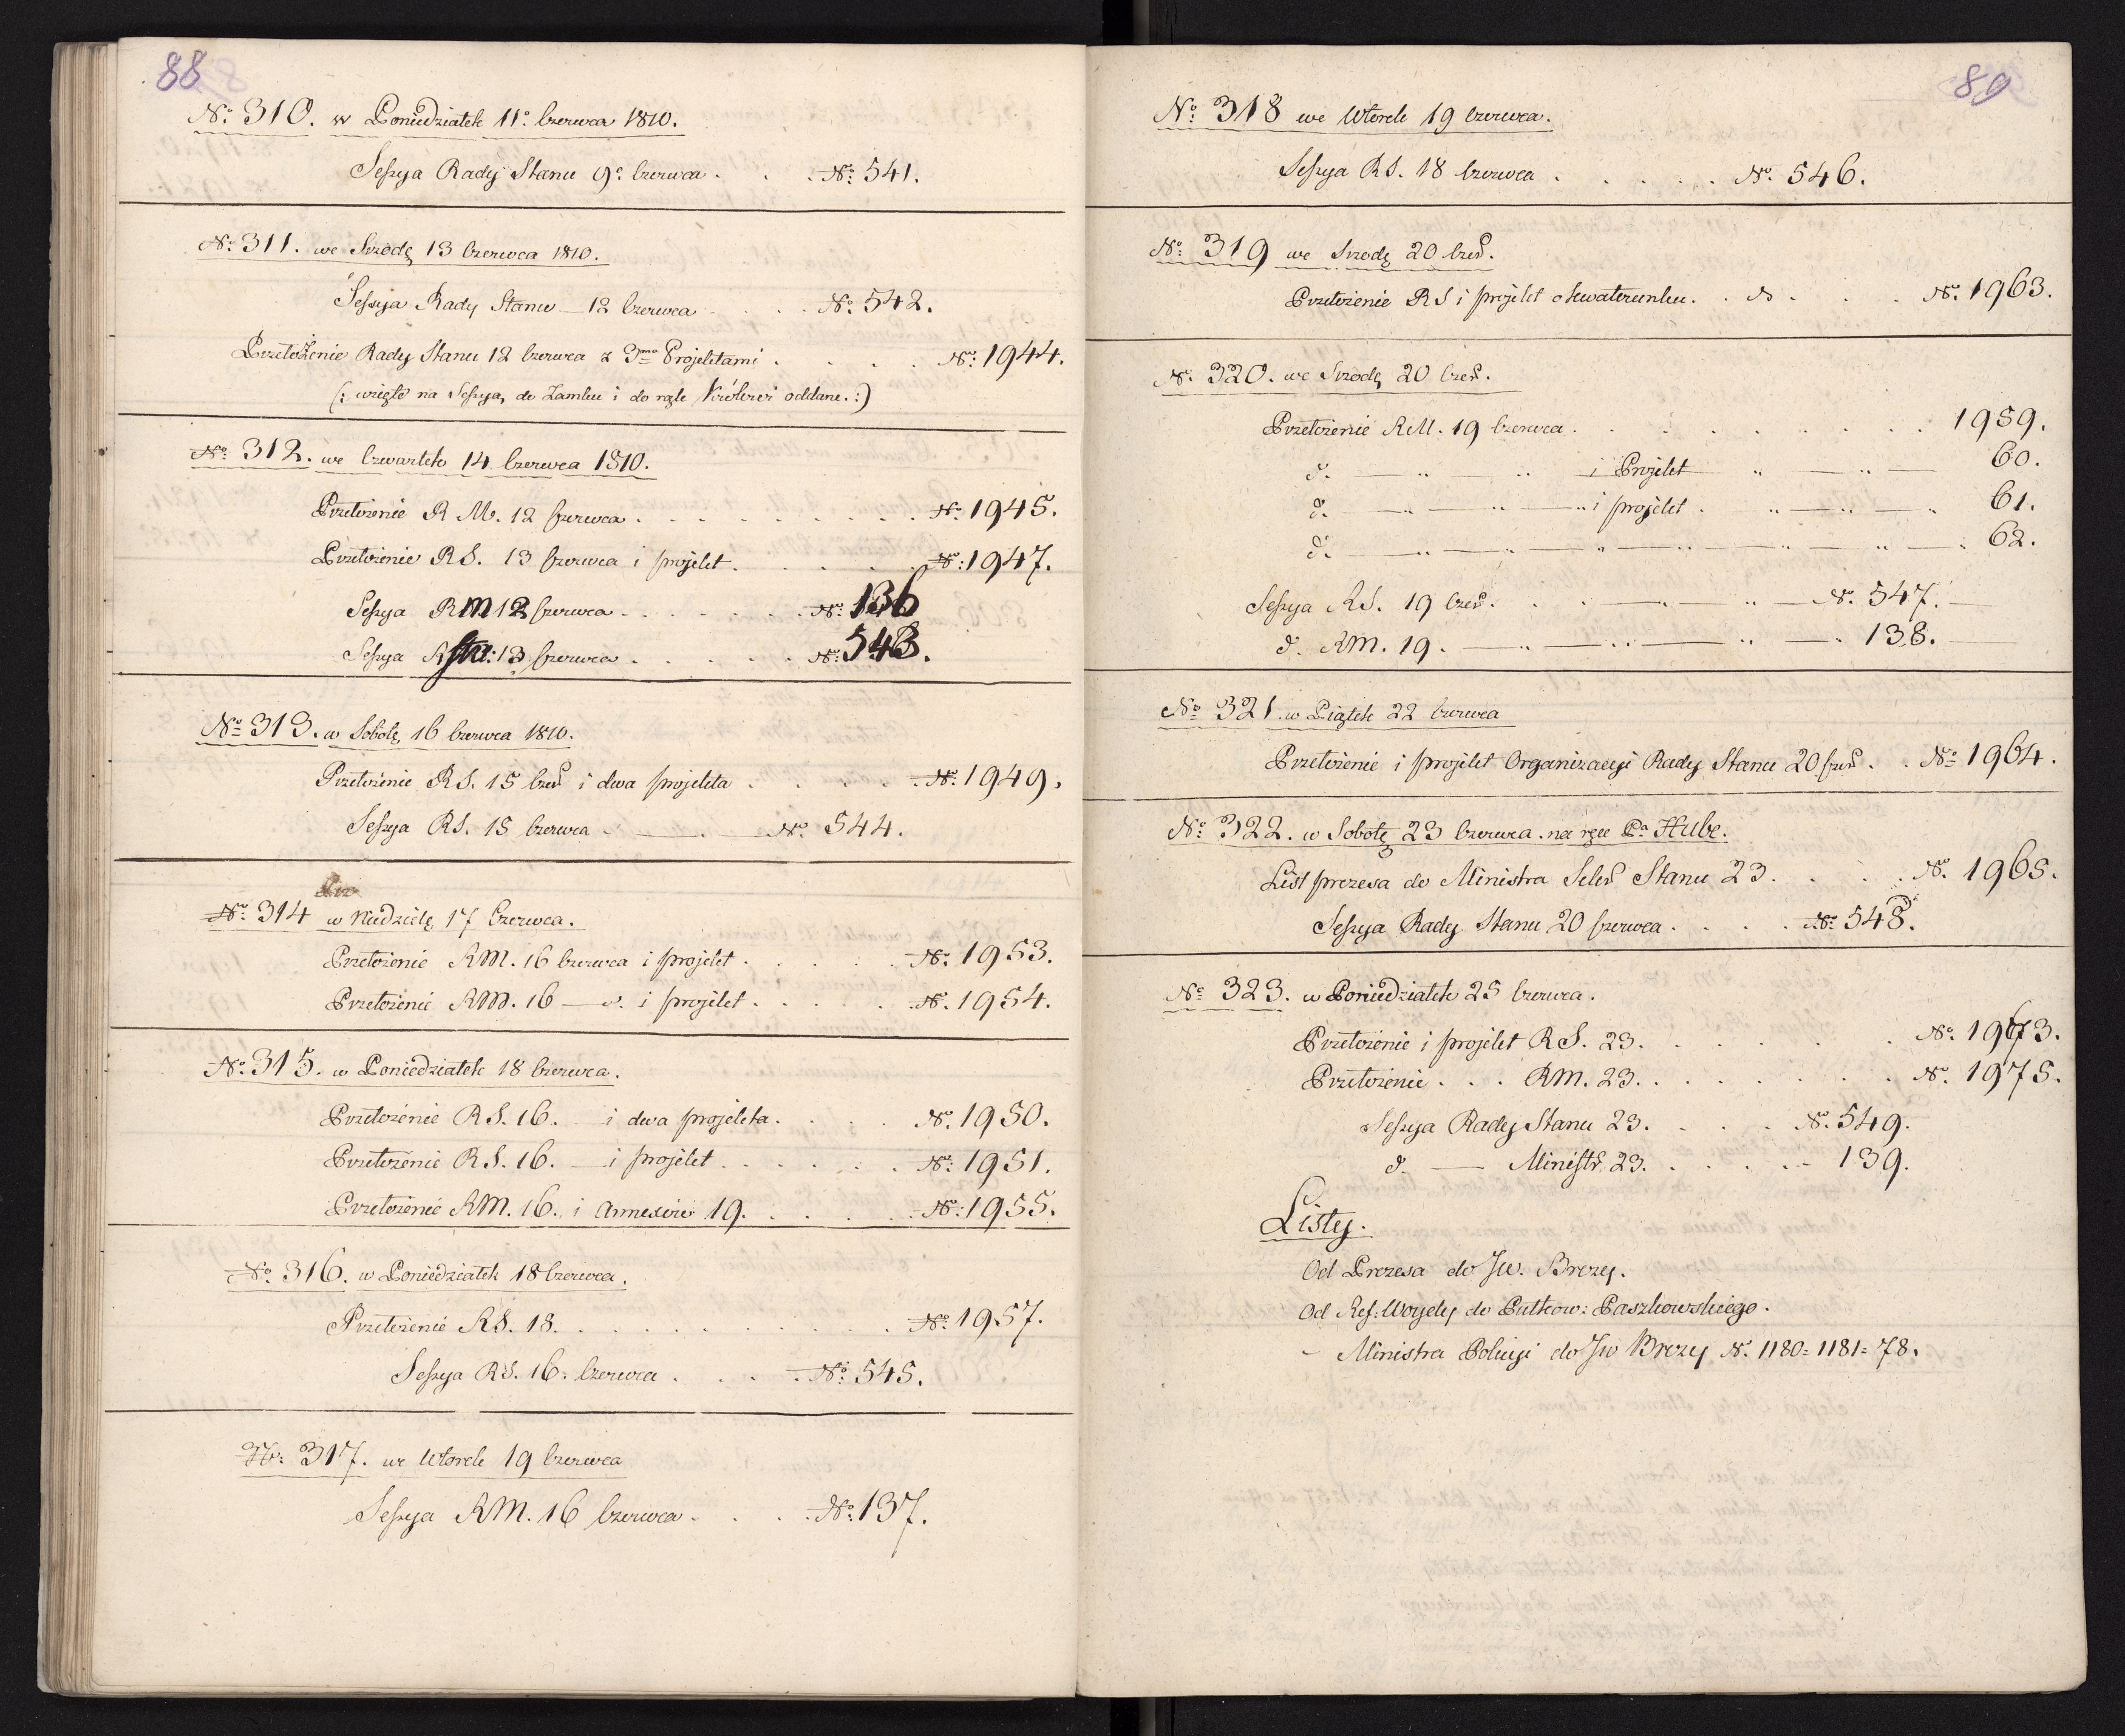 88
No: 310. w Poniedziałek 11o Czerwca 1810.
Sessya Rady Stanu 9o Czerwca . . . No: 541.
No: 311. we Srzodę 13 Czerwca 1810.
Sessya Rady Stanu — 12 Czerwca . . . . No: 542.
Przełożenie Rady Stanu 12 Czerwca z 3ma Projektami . . . . No: 1944.
(: wzięte na Sessyą do Zamku i do rąk Królewi oddane. :)
No: 312. we Czwartek 14 Czerwca 1810.
Przełożenie R M. 12 Czerwca . . . . . . . . . No: 1945.
Przełożenie R S. 13 Czerwca i projekt . . . . . . No: 1947.
Sessya RM 12 Czerwca . . . . . . No: 136
Sessya R Sta: 13 Czerwca . . . . . . No: 543.
No: 313. w Sobotę 16 Czerwca 1810.
Przełożenie R S. 15 Czer i dwa projekta . . . . . No. 1949.
Sessya RS. 15 Czerwca . — . — No. 544.
No: 314 w Niedzielę 17 Czerwca.
Przełożenie RM. 16 Czerwca i projekt . . . . . No: 1953.
Przełożenie RM. 16 — d. i projekt . . . . . No. 1954.
No: 315. w Poniedziałek 18 Czerwca.
Przełożenie R S. 16. — i dwa projekta . . . . No. 1950.
Przełożenie R S. 16. — i projekt . . . . . . No: 1951.
Przełożenie RM. 16. i Annexów 19. . . . . . No: 1955.
No: 316. w Poniedziałek 18 Czerwca.
Przełożenie RS. 18. . . . . . . . . . . No: 1957.
Sessya RS. 16. Czerwca . . . . . No: 545.
No: 317. we Wtorek 19 Czerwca
Sessya RM. 16 Czerwca . . . . No: 137.
89
No: 318 we Wtorek 19 Czerwca.
Sessya RS. 18 Czerwca . . . . . . No. 546.
No: 319 we Srzodę 20 Czer.
Przełożenie RS i projekt o kwaterunku. . . . . . No. 1963.
No. 320. we Srzodę 20 Czer.
Przełożenie RM. 19 Czerwca . . . . . . . . . 1959.
d. — „ „ i Projekt „ — „ — 60.
d. — „ — „ — „ i projekt . „ — „ — „ 61.
d. — „ — „ — „ — „ — „ — „ 62.
Sessya RS. 19 Czer. . . . — „ — „ — No. 547. —
d. RM. 19. — „ — „ — „ — „ 138. —
No 321. w Piątek 22 Czerwca
Przełożenie i projekt Organizacyi Rady Stanu 20 Czer . . No: 1964.
No: 322. w Sobotę 23 Czerwca. na ręce Pa Hube.
List prezesa do Ministra Sekr Stanu 23. . . . . No. 1965.
Sessya Rady Stanu 20 Czerwca . . . . No: 548.
No 323. w Poniedziałek 25 Czerwca.
Przełożenie i projekt R S. 23. . . . . . . No. 1973.
Przełożenie . . . RM. 23. . . . . . . . No. 1975.
Sessya Rady Stanu 23. . . . . No. 549.
d. — Ministr. 23. . . . . - 139.
Listy.
Od Prezesa do Jw. Brezy.
Od Ref: Woydy do Pułkow: Paszkowskiego.
- Ministra Policyi do Jw Brezy No. 1180 = 1181 = 78.